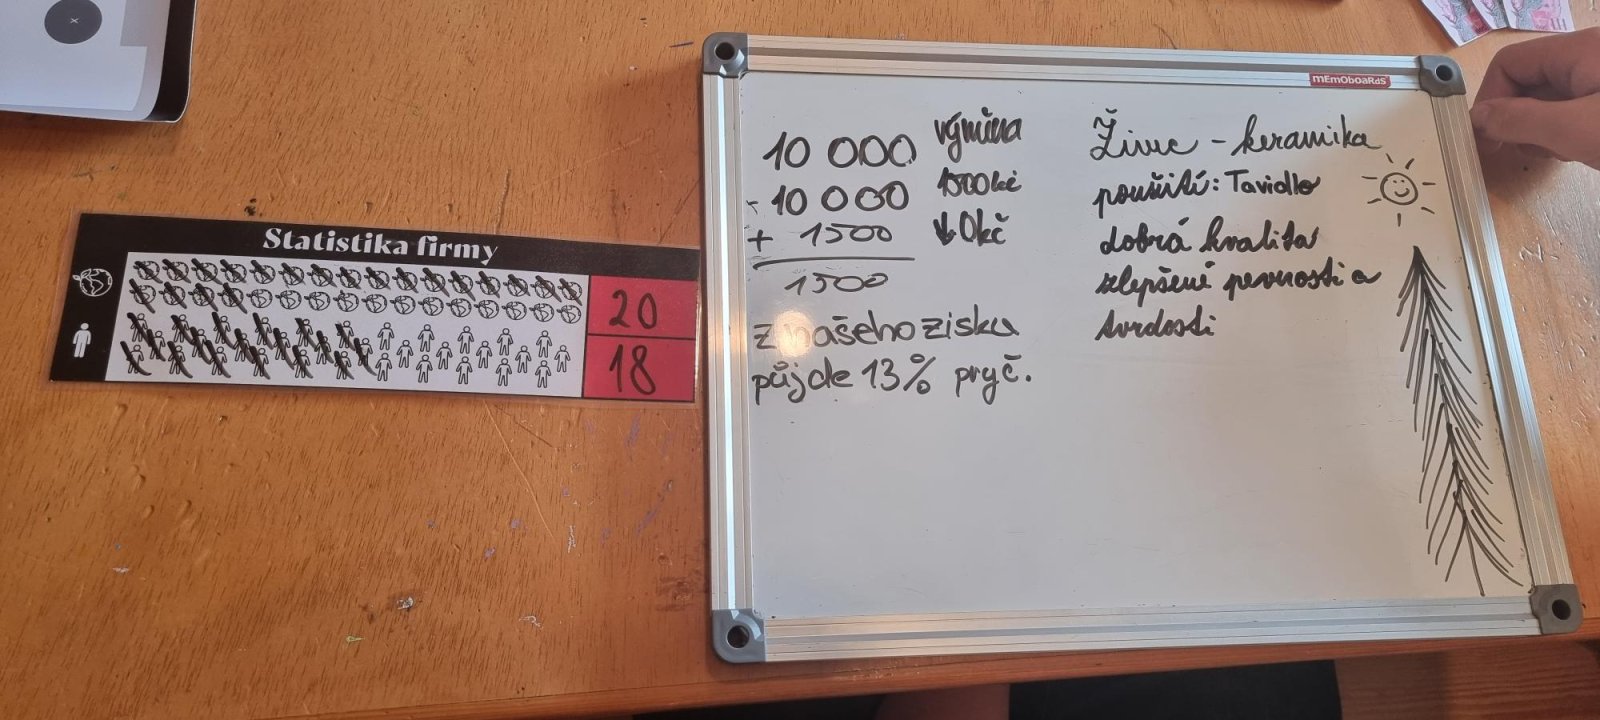 Statistika firmy
20
18
mEmOboaRdS
10 000
- 10 000
+ 1500
1500
výměna
1500kč
↓0kč
z našeho zisku
půjde 13% pryč.
Živec - keramika
použití: Tavidlo
dobrá kvalita
zlepšení pevnosti a
tvrdosti